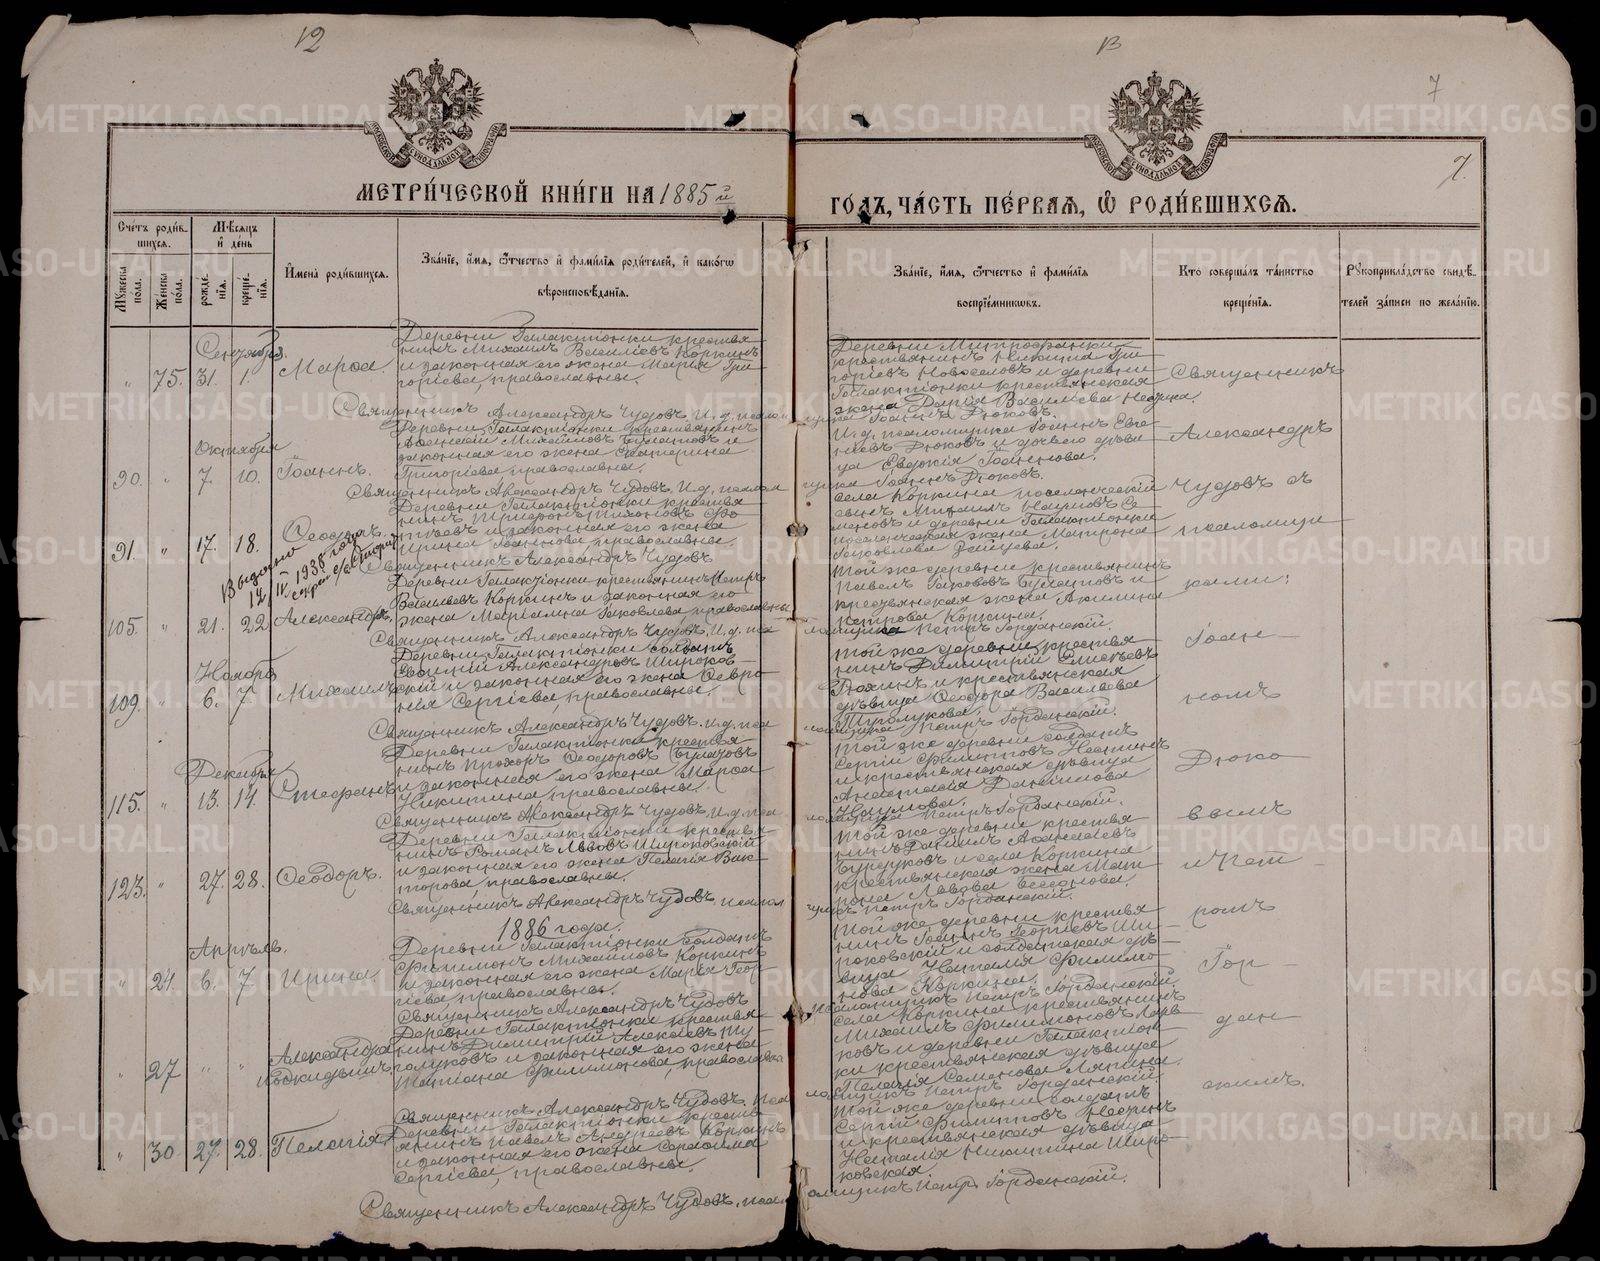 12
13
7
МЕТРИ́ЧЕСКОЙ КНИ́ГИ НА 1885 й
ГОДЪ, ЧА́СТЬ ПЕ́РВАЯ, Ѡ РОДИ́ВШИХСЯ.
7.
Сче́тъ роди́в-
шихся.
Му́жеска по́ла.
Же́нска по́ла.
Мѣ́сяцъ
и де́нь
рожде́-
нія.
креще́-
нія.
Имена́ роди́вшихся.
Зва́ніе, и́мя, о́тчество и фами́лія роди́телей, и како́гѡ
вѣроисповѣ́данія.
Зва́ніе, и́мя, о́тчество и фами́лія
воспріе́мниковъ.
Кто̀ соверша́лъ та́инство
креще́нія.
Рукоприкла́дство свидѣ́-
телей за́писи по жела́нію.
Сентября
" 75. 31. 1. Марѳа.
Деревни Галактіонки крестья
нинъ Михаилъ Василіевъ Коркинъ
и законная его жена Марія Гри
горіева, православны.
Деревни Митрофанки
крестьянинъ Никита Гри
горіевъ Новоселовъ и деревни
Галактіонки крестьянская
жена Дарья Василіева
Священникъ
Священникъ Александръ Чудовъ. И. д. псалом
щика Іоаннъ Дюковъ.
Октября
90. " 7. 10. Іоаннъ.
Деревни Галактіонки крестьянинъ
Аѳанасій Михаиловъ Булатовъ и
законная его жена Екатерина
Григоріева, православны.
И. д. псаломщика Іоаннъ Евге
ніевъ Дюковъ и дочь дѣви
ца Евдокія Іоаннова.
Александръ
Священникъ Александръ Чудовъ. И. д. псалом
щика Іоаннъ Дюковъ.
91. " 17. 18. Ѳеодоръ.
Деревни Галактіонки крестья
нинъ Трифонъ Тихоновъ
и законная его жена
Ирина Іоаннова, православны.
села Коркина поселенческій
сынъ Михаилъ Наумовъ Се
меновъ и деревни Галактіонки
поселенческая жена Матрона
Чудовъ съ
псаломщи
Священникъ Александръ Чудовъ
Выдано
12/IV 1938 года
105. " 21. 22. Александръ.
Деревни Галактіонки крестьянинъ Петръ
Васильевъ Коркинъ и законная его
жена Маріанна Іаковлева, православны
Той же деревни крестьянинъ
Павелъ Іаковлевъ Булатовъ и
крестьянская жена Акилина
Петрова Коркина.
ками:
Священникъ Александръ Чудовъ. И. д. пса
ломщика Петръ Іорданскій.
Ноября
109. " 6. 7. Михаилъ
Деревни Галактіонки солдатъ
Евѳимій Александровъ Широков
скій и законная его жена Февро
нія Сергіева, православны.
Той же деревни крестья
нинъ Димитрій Елисѣевъ
Гюхинъ и крестьянская
дѣвица Ѳеодора Василіева
Туголукова.
Іоан
номъ
Священникъ Александръ Чудовъ. И. д. пса
ломщика Петръ Іорданскій.
Декабря
115. " 13. 14. Стефанъ
Деревни Галактіонки крестья
нинъ Прохоръ Ѳеодоровъ Булатовъ
и законная его жена Марѳа
Никитина, православны.
Той же деревни солдатъ
Сергій Филипповъ Нестинъ
и крестьянская дѣвица
Анастасія Даніилова
Наумова.
Дюко
Священникъ Александръ Чудовъ. И. д. пса
ломщика Петръ Іорданскій.
123. " 27. 28. Ѳеодоръ.
Деревни Галактіонки крестья
нинъ Романъ Львовъ Широковскій
и законная его жена Пелагія Вик
торова, православны.
Той же деревни крестья
нинъ Даніилъ Аѳанасіевъ
Бурдуковъ и села Коркина
крестьянская жена Мат
рона Львова Бессонова.
вымъ
и Пет
Священникъ Александръ Чудовъ, псалом
щикъ Петръ Іорданскій.
1886 года.
Апрѣль.
" 24. 6. 7. Ирина.
Деревни Галактіонки солдатъ
Филимонъ Михаиловъ Коркинъ
и законная его жена Марія Геор
гіева, православны.
Той же деревни крестья
нинъ Іоаннъ Георгіевъ Ши
роковскій и солдатская дѣ
вица Наталія Филимо
нова Коркина.
ромъ
Іор
Священникъ Александръ Чудовъ
псаломщикъ Петръ Іорданскій.
" 27 " " Александра
подкидышъ.
Деревни Галактіонки крестья
нинъ Димитрій Алексіевъ Ту
голуковъ и законная его жена
Татіана Филимонова, православны
села Коркина крестьянинъ
Михаилъ Филимоновъ Ларь
ковъ и деревни Галактіон
ки крестьянская дѣвица
Пелагія Семенова Ляпина.
дан
Священникъ Александръ Чудовъ. пса
ломщикъ Петръ Іорданскій.
" 30 27. 28. Пелагія.
Деревни Галактіонки кресть
янинъ Павелъ Андреевъ Коркинъ
и законная его жена Серафима
Сергіева, православны.
Той же деревни солдатъ
Сергій Филипповъ Нестинъ
и крестьянская дѣвица
Наталія Никитина Широ
ковская.
скимъ.
Священникъ Александръ Чудовъ, псал
омщикъ Петръ Іорданскій.